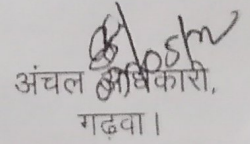 अंचल अधिकारी,
गढ़वा।